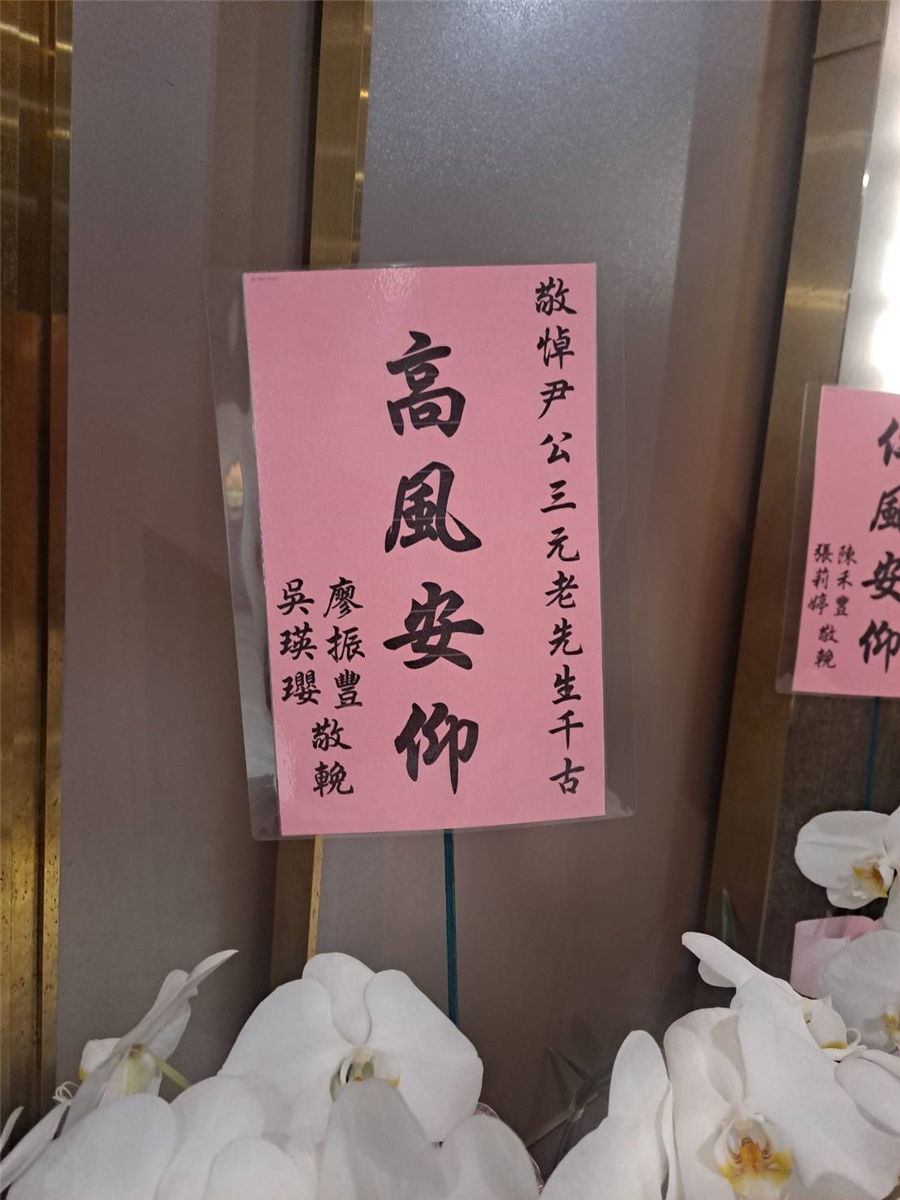 敬悼尹公三元老先生千古
高風安仰
廖振豐
吳瑛瓔
敬輓
風安仰
陳禾豐
張莉婷
敬輓